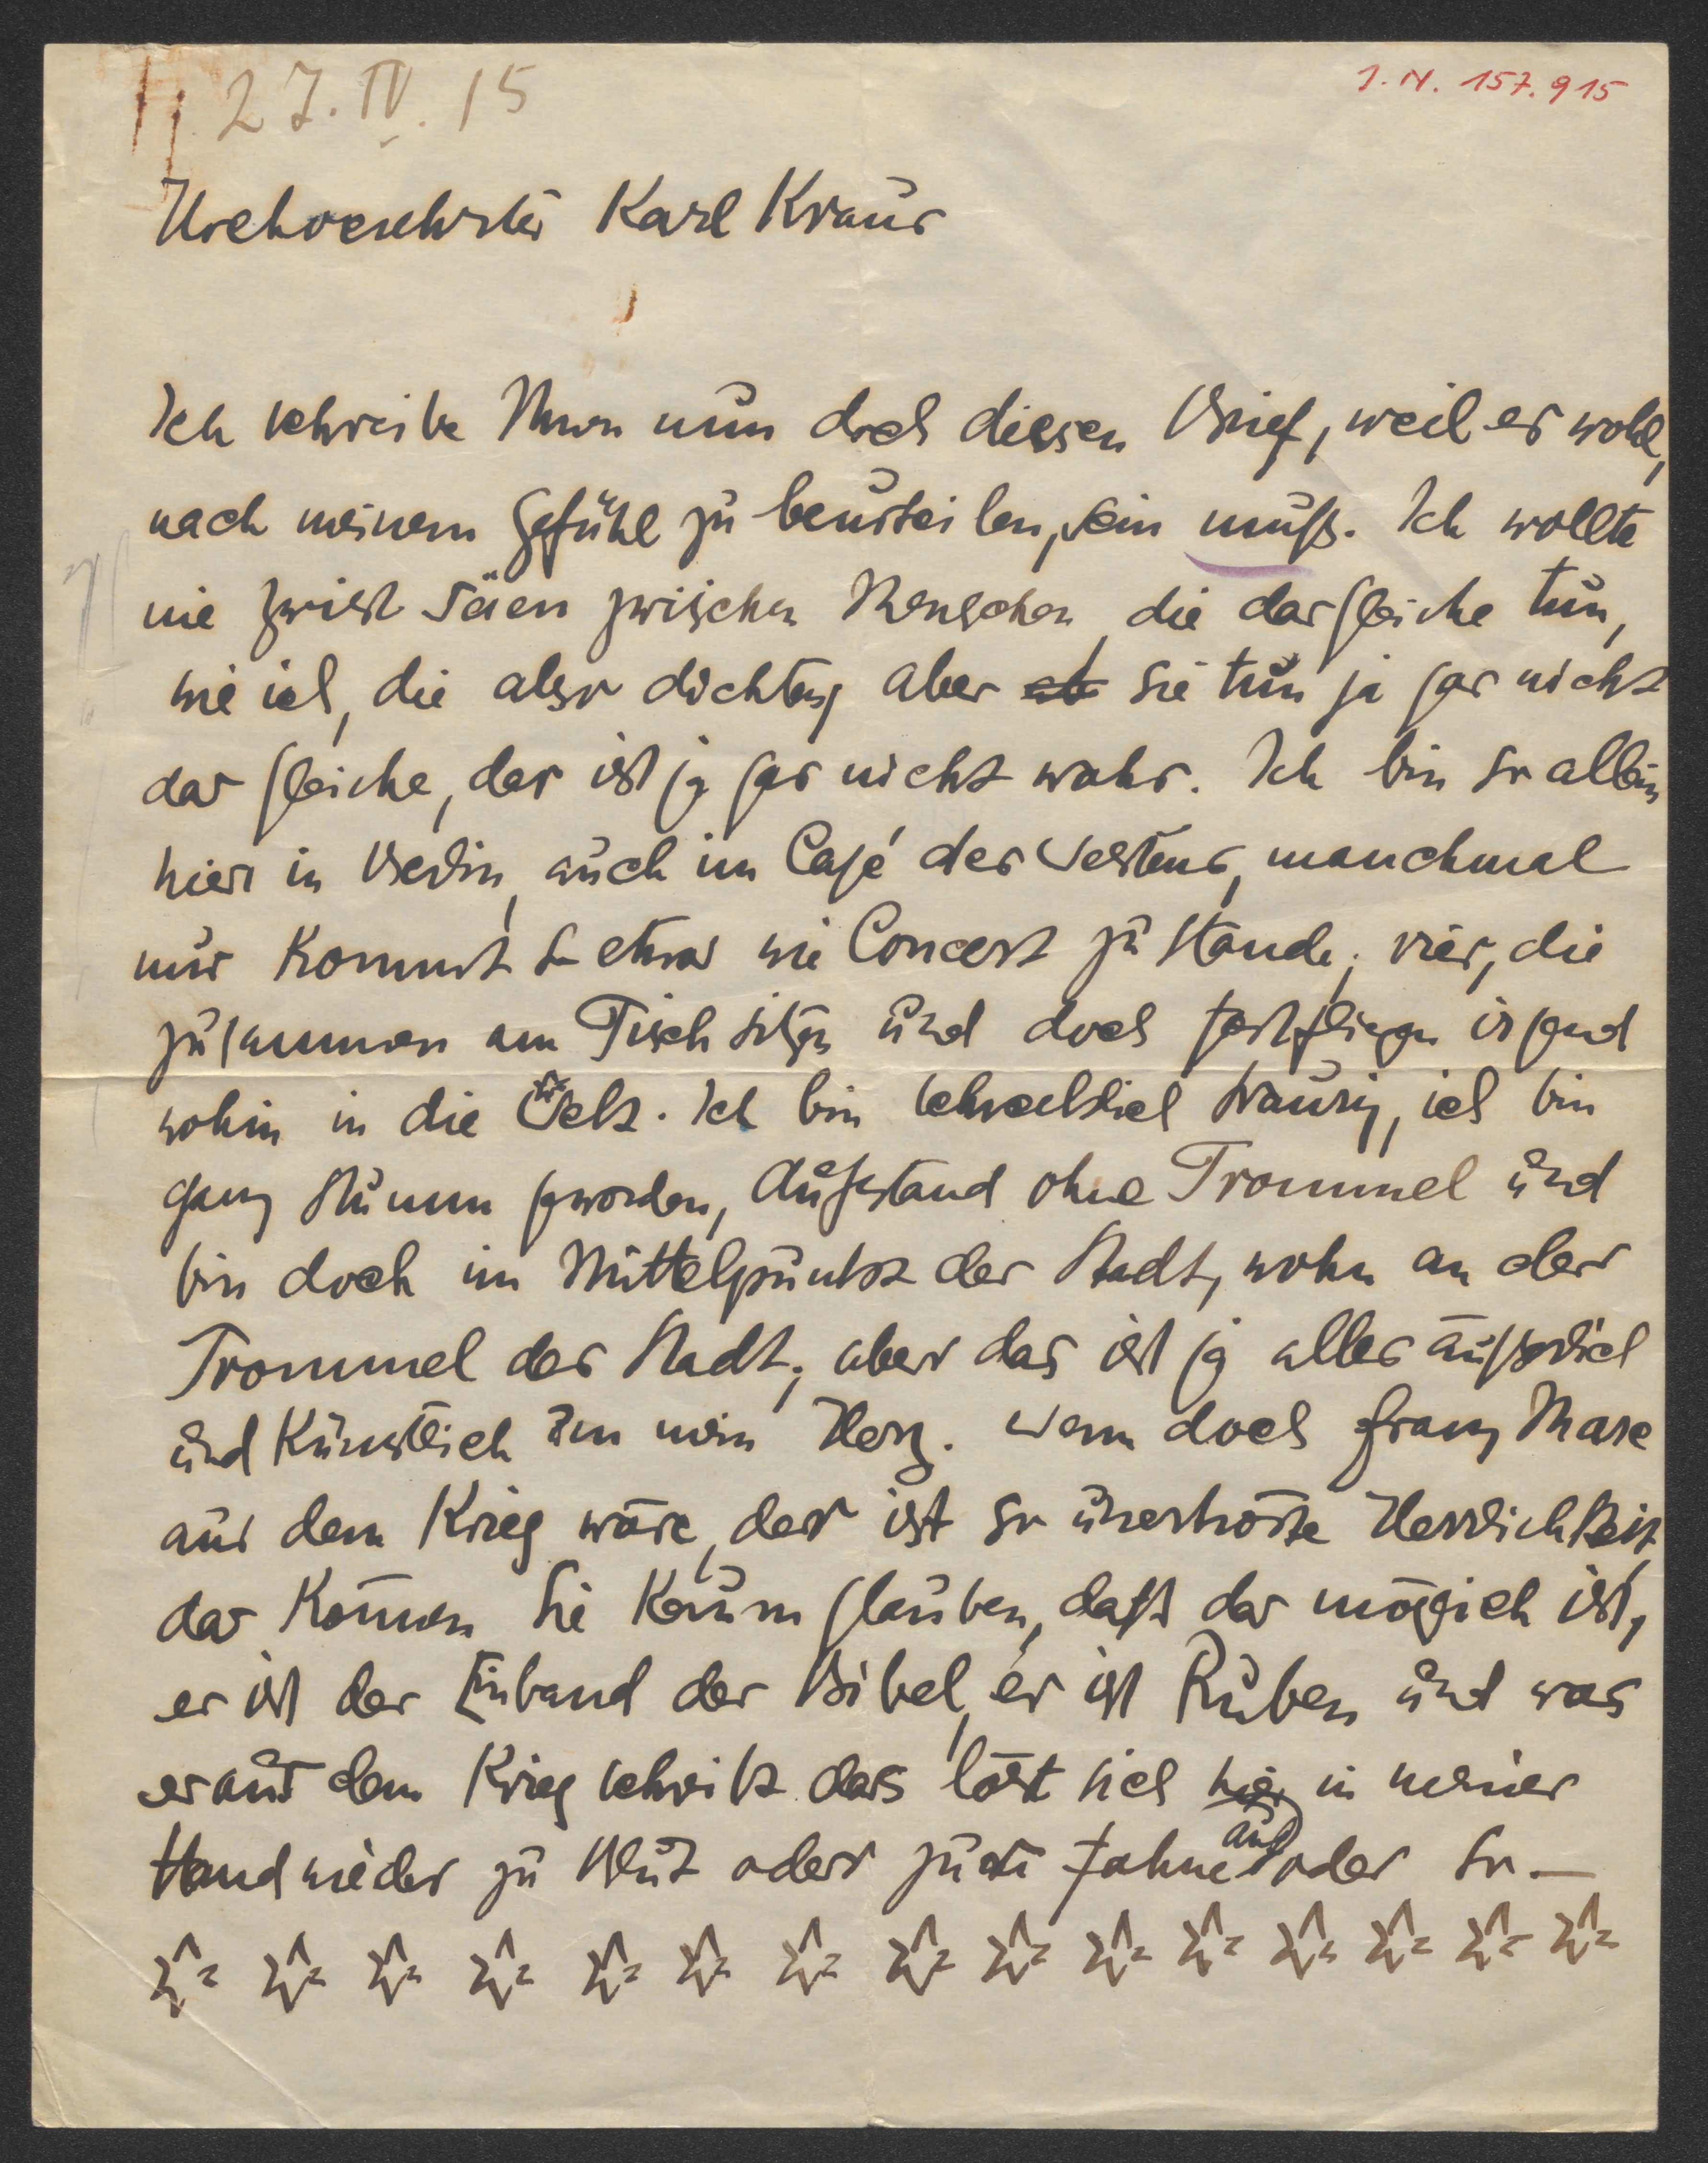 27. IV. 15
I. N. 157.915
Hochverehrter Karl Kraus
Ich schreibe Ihnen nun doch diesen Brief, weil es wohl,
nach meinem Gefühl zu beurteilen, sein muß. Ich wollte
nie Zwist säen zwischen Menschen, die das gleiche tun,
wie ich, die also dichten, aber sie tun ja gar nicht
das gleiche, das ist ja gar nicht wahr. Ich bin so allein
hier in Berlin, auch im Café des Westens, manchmal
nur kommt so etwas wie Concert zu stande; vier, die
zusammen am Tisch sitzen und doch fortfliegen irgend
wohin in die Welt. Ich bin schrecklich traurig, ich bin
ganz stumm geworden, Aufstand ohne Trommel und
bin doch im Mittelpunkt der Stadt, wohn an der
Trommel der Stadt; aber das ist ja alles äußerlich
und künstlich um mein Herz. Wenn doch Franz Marc
aus dem Krieg wäre, der ist so unerhörte Herrlichkeit,
das können Sie kaum glauben, daß das möglich ist,
er ist der Einband der Bibel, er ist Ruben und was
er aus dem Krieg schreibt das löst sich hier in meiner
Hand wieder zu Blut oder zur Fahne auf oder so –